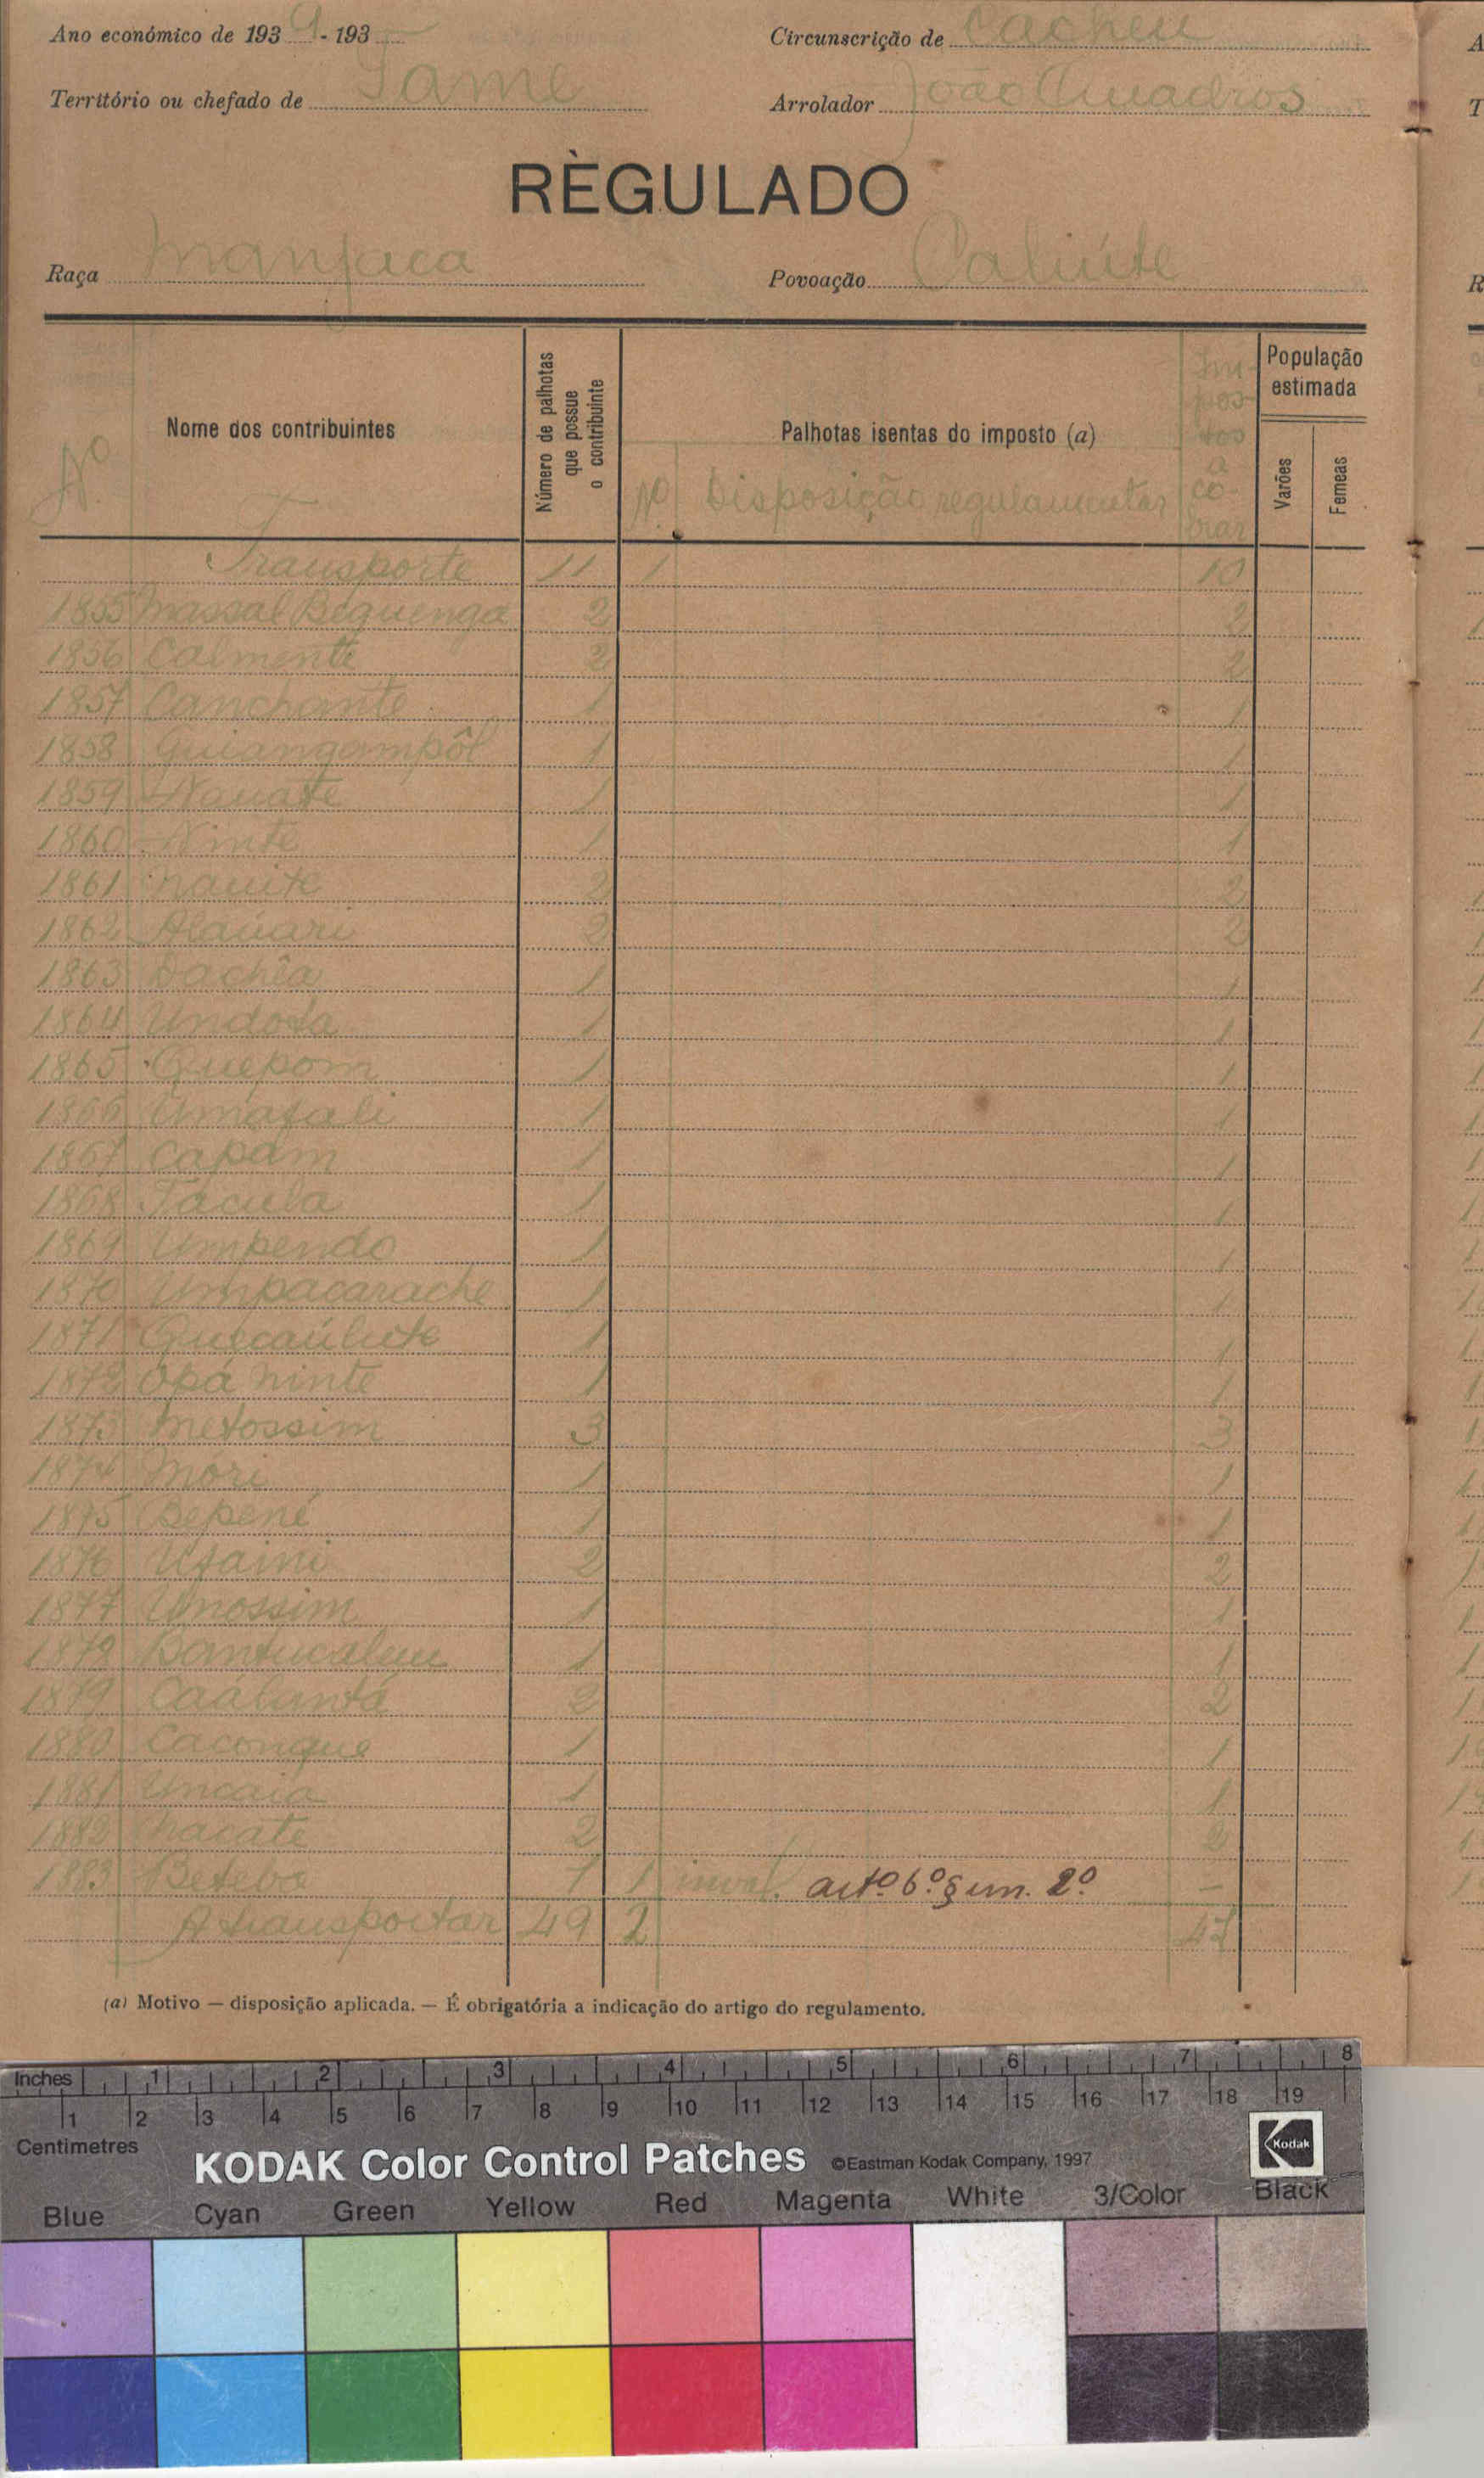 Ano económico de 1939-193
Circunscrição de Cacheu
Território ou chefado de Pame
Arrolador João Quadros
RÈGULADO
Raça Manjaca
Povoação Caliúte
Nº
Nome dos contribuintes
Número de palhotas que possue o contribuinte
Palhotas isentas do imposto (a)
Nº Disposição regulamentar
Impostos a cobrar
População estimada
Varões
Femeas
Transporte 11 1 10
1855 Massal Bequenga 2 2
1856 Calmente 2 2
1857 Canchante 1 1
1858 Quiangampôl 1 1
1859 Nauate 1 1
1860 Ninte 1 1
1861 Nauite 2 2
1862 Alauari 2 2
1863 Dachêa 1 1
1864 Undota 1 1
1865 Quepom 1 1
1866 Umatali 1 1
1867 Capam 1 1
1868 Tacula 1 1
1869 Umpendo 1 1
1870 Umpacarache 1 1
1871 Quecaúlute 1 1
1872 Opá Ninte 1 1
1873 Metossim 3 3
1874 Móri 1 1
1875 Bepené 1 1
1876 Utaini 2 2
1877 Umossim 1 1
1878 1 1
1879 Caálantá 2 2
1880 Caconque 1 1
1881 Uncaia 1 1
1882 Nacate 2 2
1883 Beteba 1 1 inval. artº 6º § um. 2º –
A transportar 49 2 47
(a) Motivo — disposição aplicada. — É obrigatória a indicação do artigo do regulamento.
Inches 1 2 3 4 5 6 7 8
1 2 3 4 5 6 7 8 9 10 11 12 13 14 15 16 17 18 19
Centimetres
KODAK Color Control Patches ©Eastman Kodak Company, 1997 Kodak
Blue Cyan Green Yellow Red Magenta White 3/Color Black